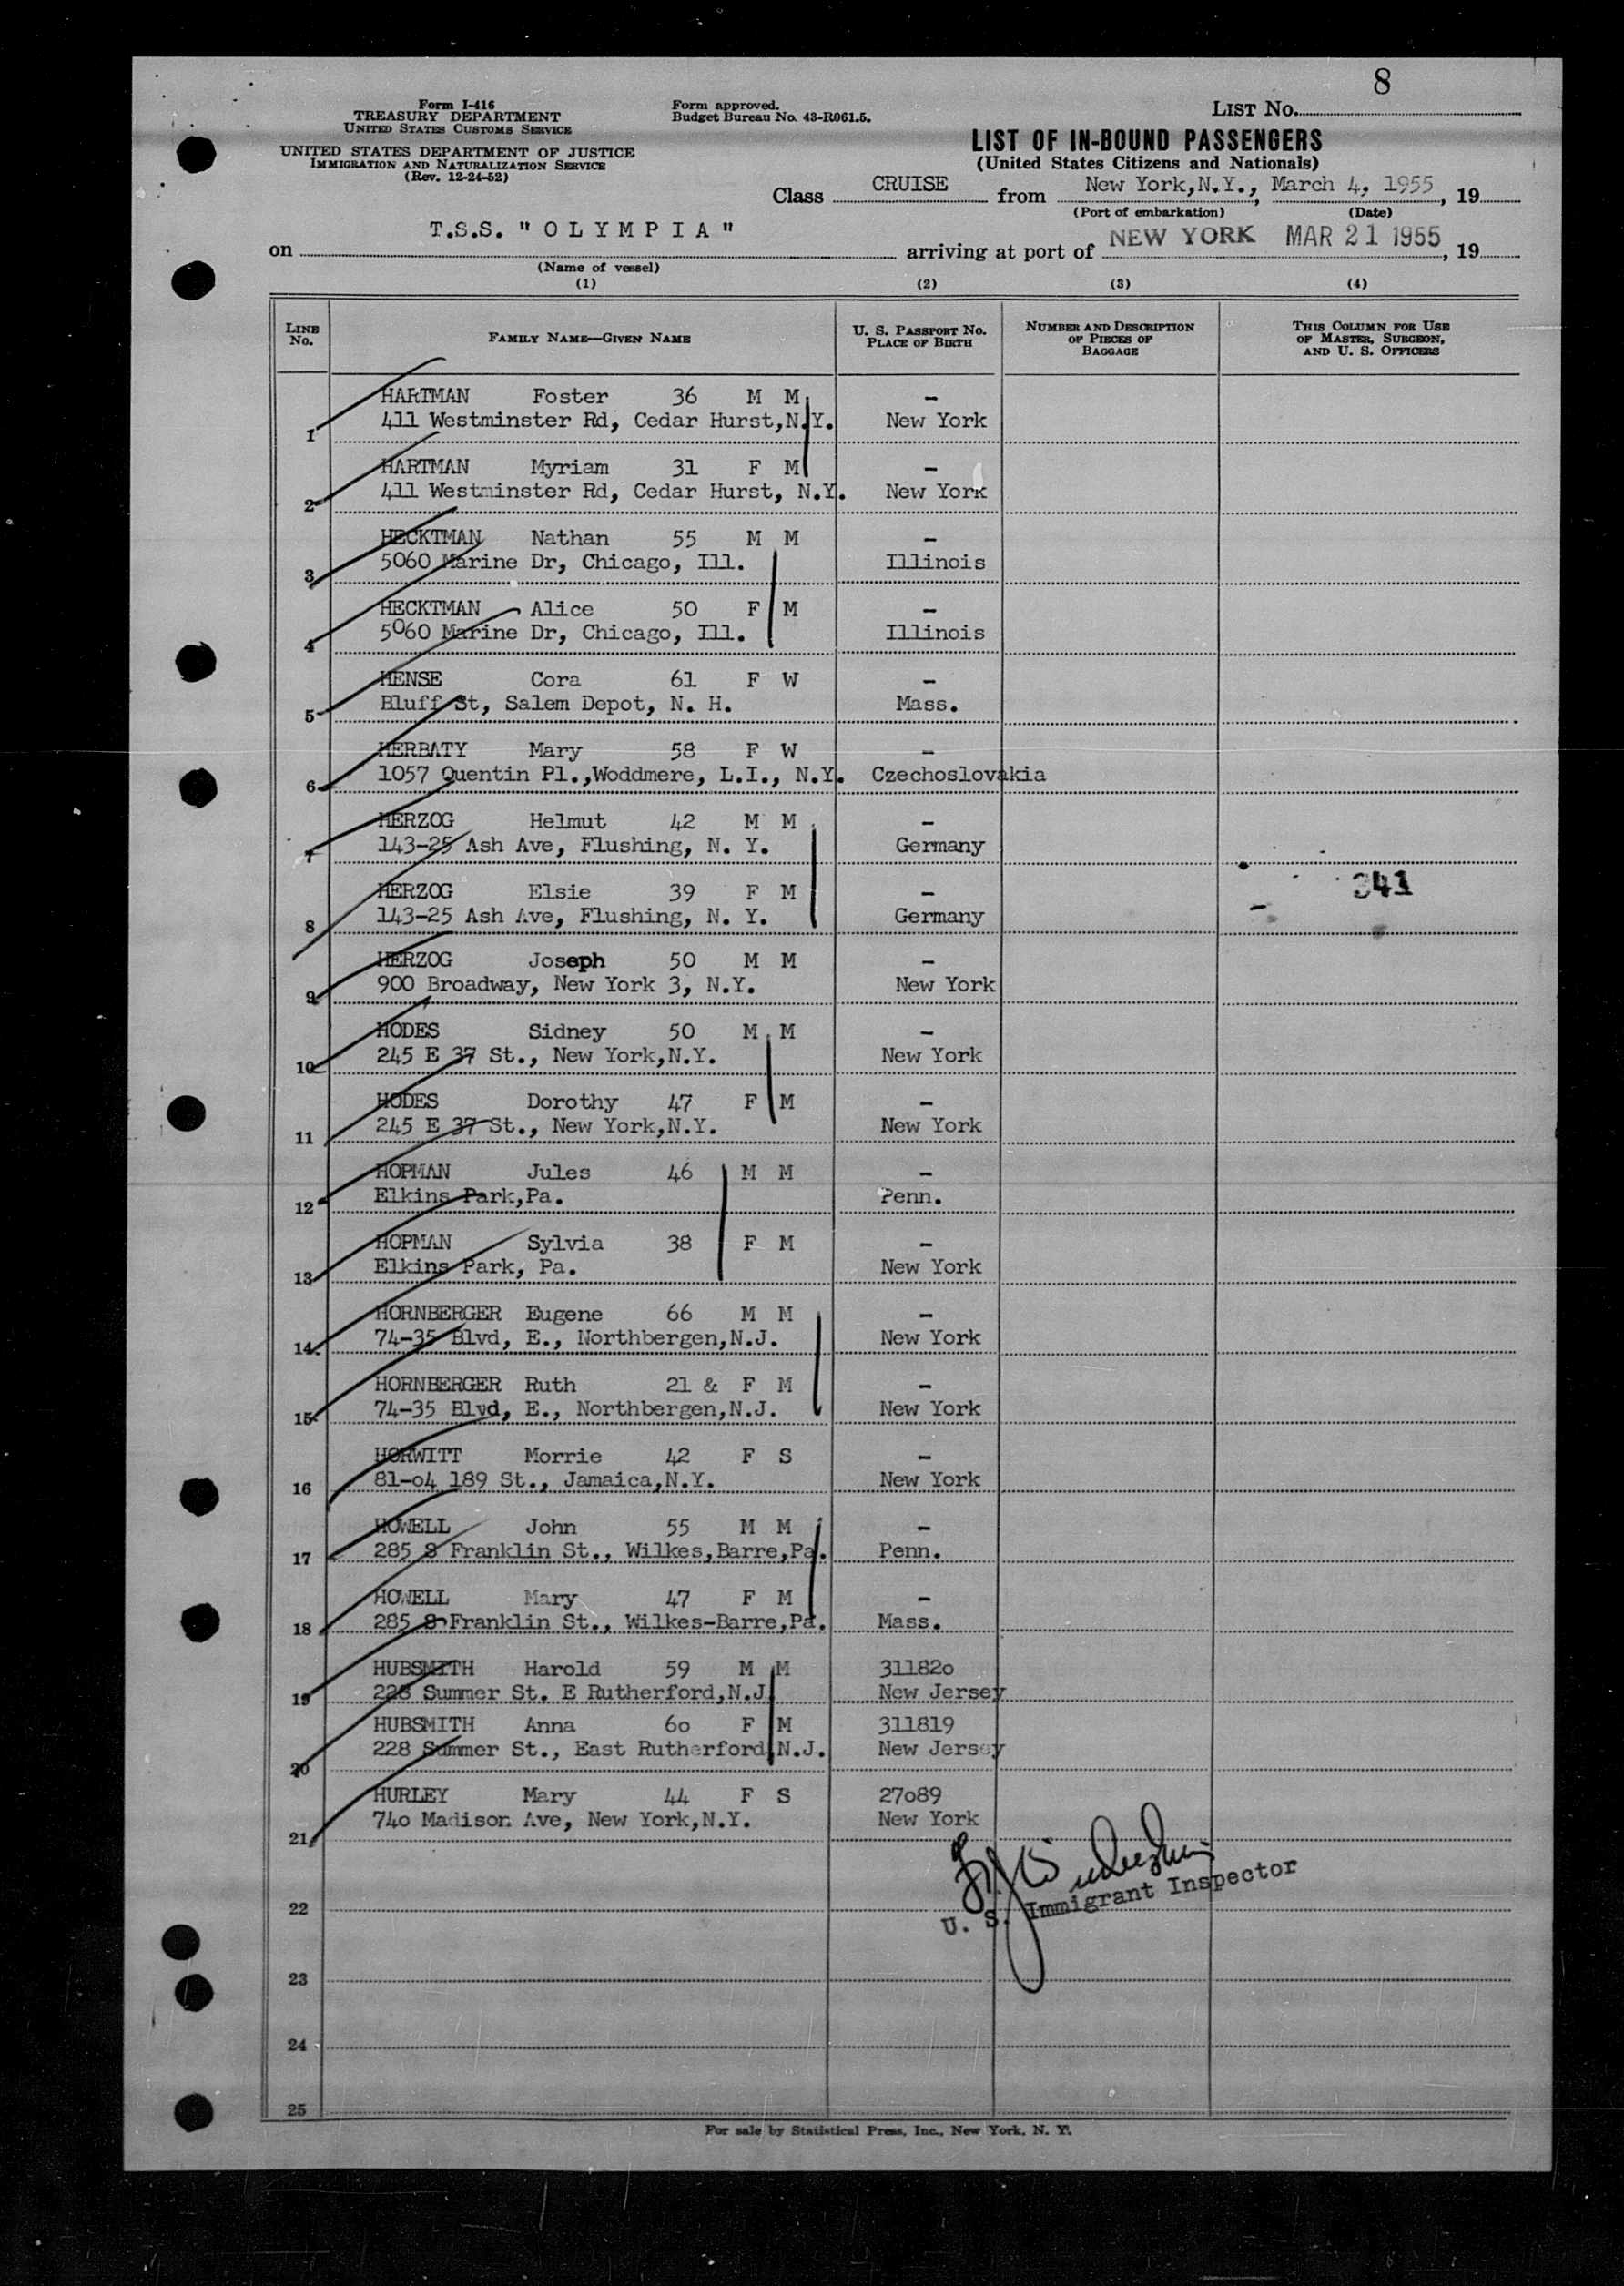 8
Form I-416
TREASURY DEPARTMENT
UNITED STATES CUSTOMS SERVICE
UNITED STATES DEPARTMENT OF JUSTICE
IMMIGRATION AND NATURALIZATION SERVICE
(Rev. 12-24-52)
Form approved.
Budget Bureau No. 43-R061.5.
LIST No.
LIST OF IN-BOUND PASSENGERS
(United States Citizens and Nationals)
Class CRUISE from New York, N.Y., March 4, 1955, 19
(Port of embarkation) (Date)
on T.S.S. "OLYMPIA" arriving at port of NEW YORK MAR 21 1955, 19
(Name of vessel)
(1) (2) (3) (4)
LINE No. FAMILY NAME—GIVEN NAME U. S. PASSPORT No. PLACE OF BIRTH NUMBER AND DESCRIPTION OF PIECES OF BAGGAGE THIS COLUMN FOR USE OF MASTER, SURGEON, AND U. S. OFFICERS
HARTMAN Foster 36 M M –
1 411 Westminster Rd, Cedar Hurst,N.Y. New York
HARTMAN Myriam 31 F M –
2 411 Westminster Rd, Cedar Hurst, N.Y. New York
HECKTMAN Nathan 55 M M –
3 5060 Marine Dr, Chicago, Ill. Illinois
HECKTMAN Alice 50 F M –
4 5060 Marine Dr, Chicago, Ill. Illinois
HENSE Cora 61 F W –
5 Bluff St, Salem Depot, N. H. Mass.
HERBATY Mary 58 F W –
6 1057 Quentin Pl.,Woddmere, L.I., N.Y. Czechoslovakia
HERZOG Helmut 42 M M –
7 143-25 Ash Ave, Flushing, N. Y. Germany
HERZOG Elsie 39 F M – 341
8 143-25 Ash Ave, Flushing, N. Y. Germany
HERZOG Joseph 50 M M –
9 900 Broadway, New York 3, N.Y. New York
HODES Sidney 50 M M –
10 245 E 37 St., New York,N.Y. New York
HODES Dorothy 47 F M –
11 245 E 37 St., New York,N.Y. New York
HOPMAN Jules 46 M M –
12 Elkins Park,Pa. Penn.
HOPMAN Sylvia 38 F M –
13 Elkins Park, Pa. New York
HORNBERGER Eugene 66 M M –
14 74-35 Blvd, E., Northbergen,N.J. New York
HORNBERGER Ruth 21 & F M –
15 74-35 Blvd, E., Northbergen,N.J. New York
HORWITT Morrie 42 F S –
16 81-o4 189 St., Jamaica,N.Y. New York
HOWELL John 55 M M –
17 285 S Franklin St., Wilkes,Barre,Pa. Penn.
HOWELL Mary 47 F M –
18 285 S Franklin St., Wilkes-Barre,Pa. Mass.
HUBSMITH Harold 59 M M 31182o
19 228 Summer St. E Rutherford,N.J. New Jersey
HUBSMITH Anna 6o F M 311819
20 228 Summer St., East Rutherford,N.J. New Jersey
HURLEY Mary 44 F S 27o89
21 74o Madison Ave, New York,N.Y. New York
U. S. Immigrant Inspector
22
23
24
25
For sale by Statistical Press, Inc., New York, N. Y.